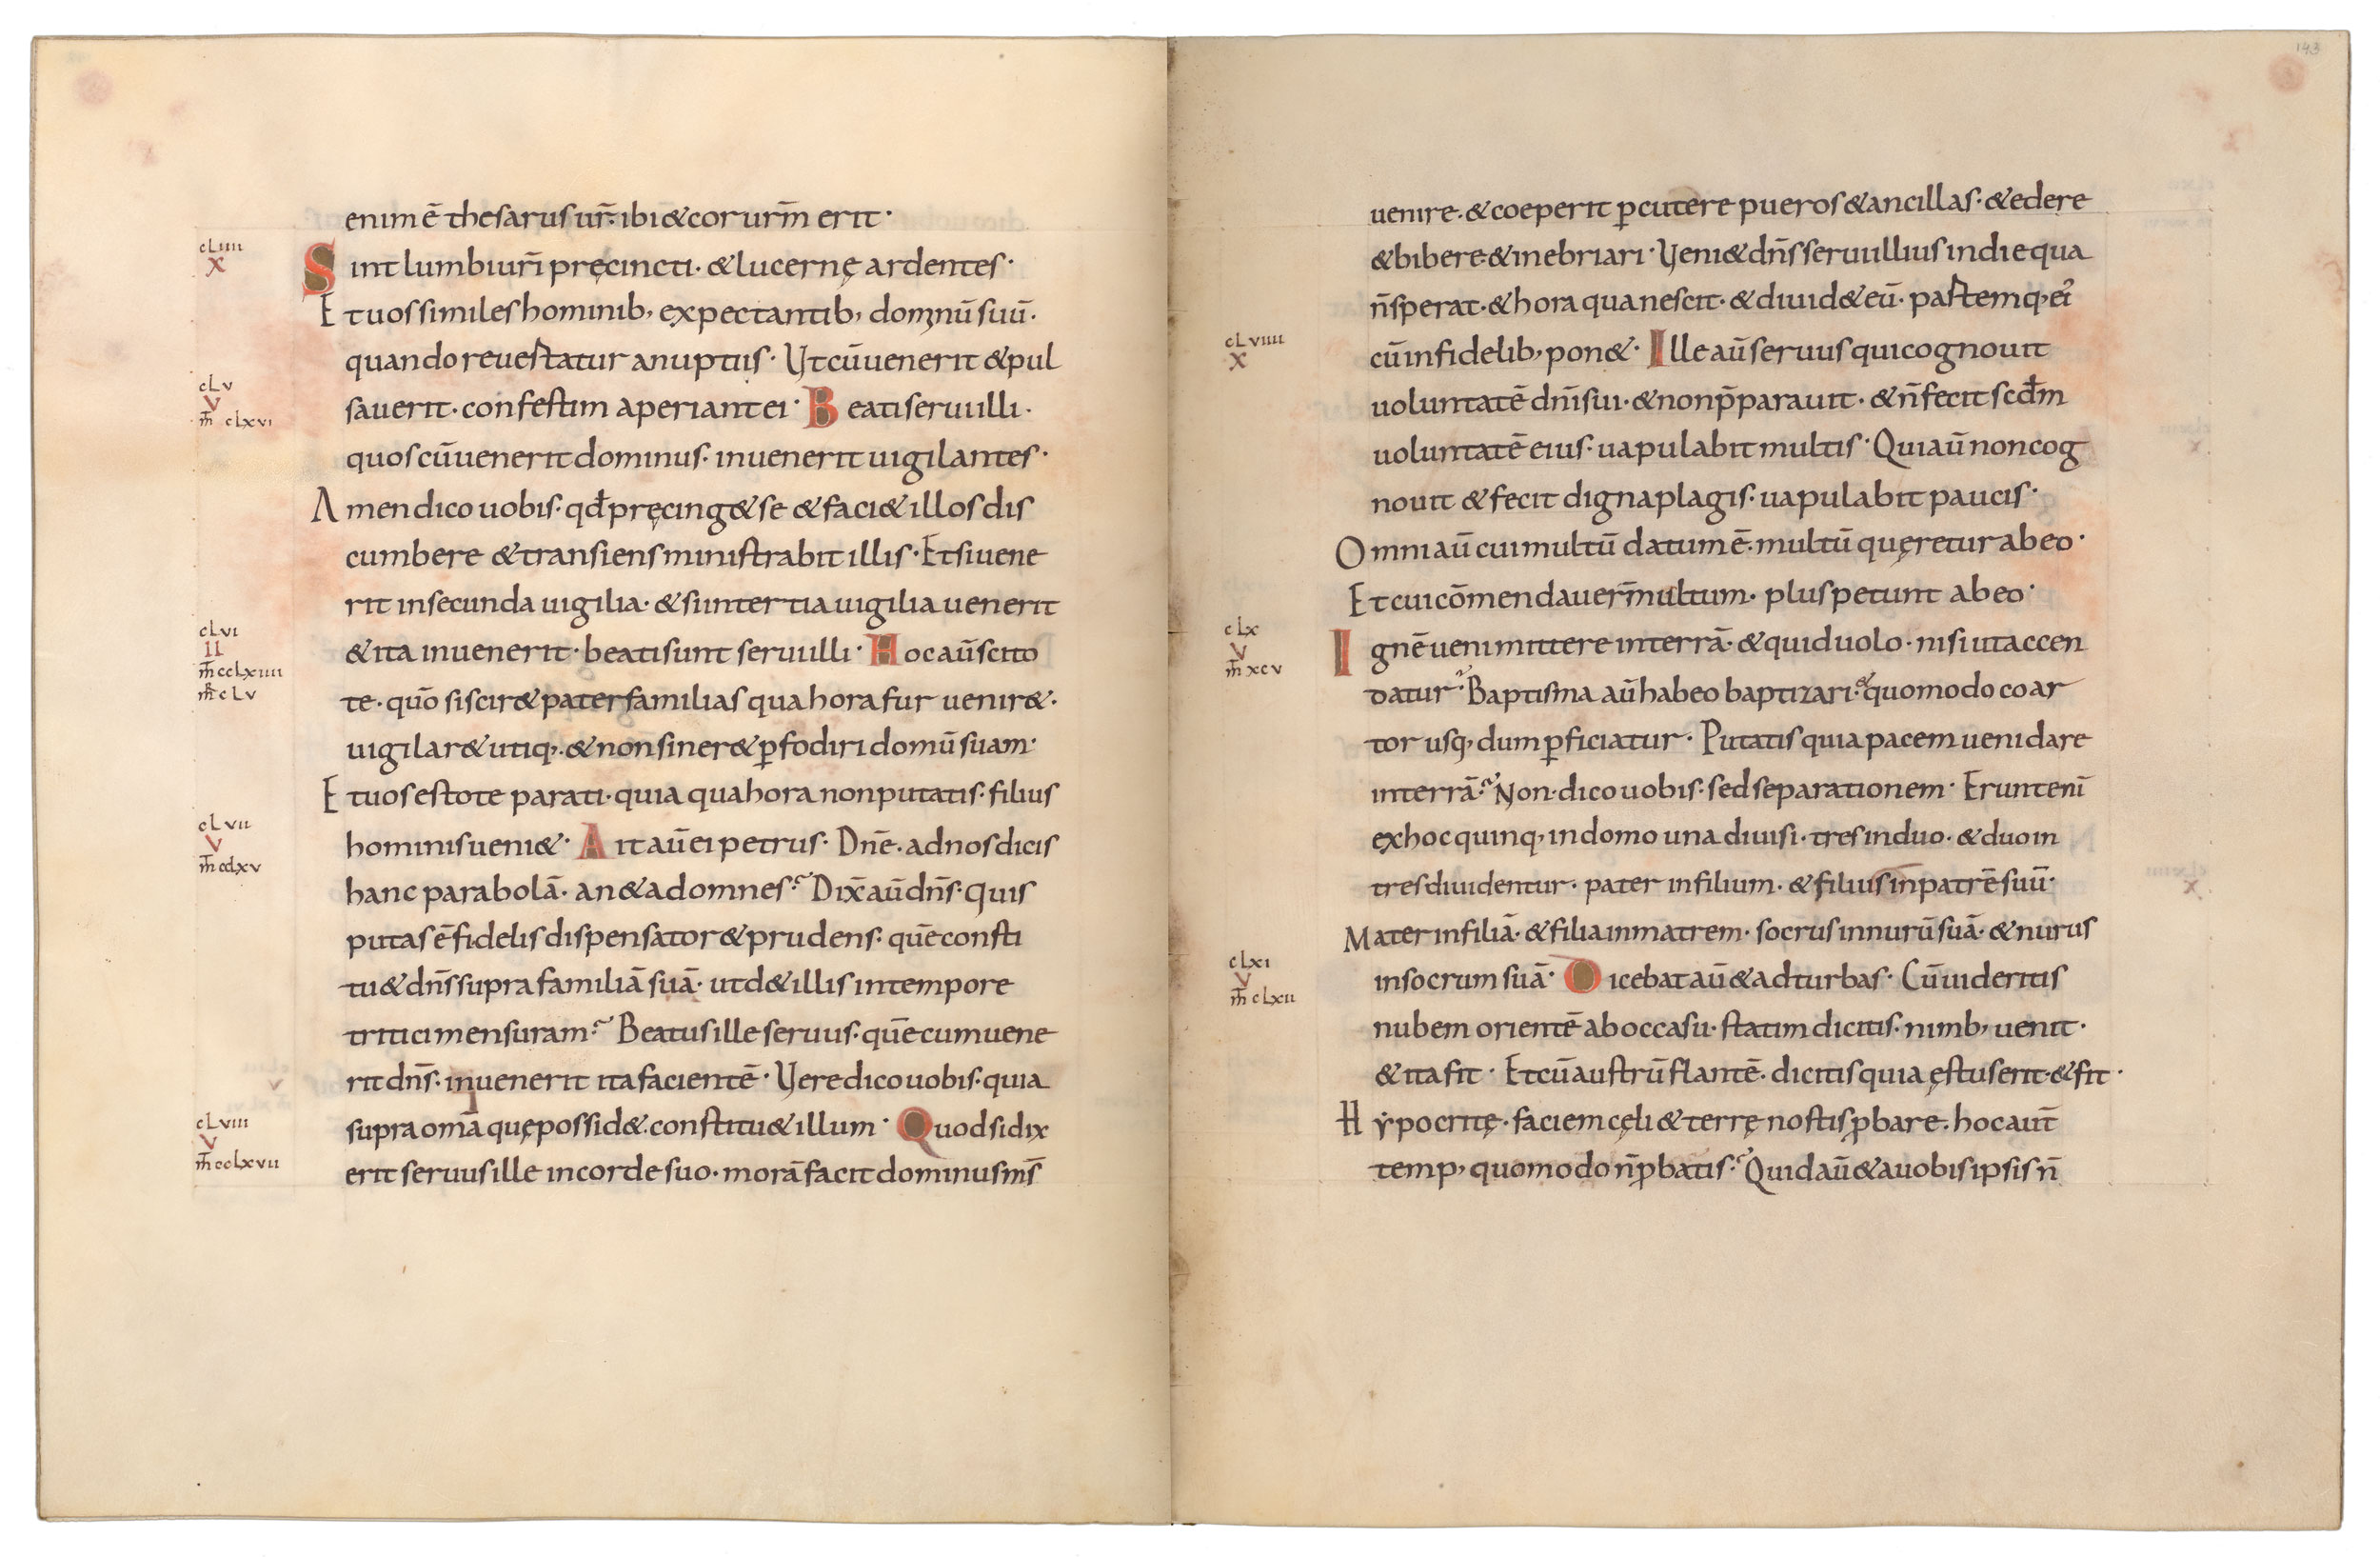 enim ē thesarus ur̄. ibi & cor urm̄ erit·
cLiiii
X
Sint lumbi uri̅ pręcincti· & lucernę ardentes·
Et uos similes hominib, expectantib, domnū suū·
quando reuertatur a nuptiis· Ut cū uenerit & pul
cLv
V
m̄ cLxvi
sauerit· confestim aperiant ei· Beati serui illi·
quos cū uenerit dominus· inuenerit uigilantes·
Amen dico uobis· qđ pręcing& se & faci& illos dis
cumbere & transiens ministrabit illis· Et si uene
rit in secunda uigilia· & si in tertia uigilia uenerit
cLvi
II
m̄ ccLxiiii
mr̄ cLv
& ita inuenerit· beati sunt serui illi· Hoc aū scito
te· quō si scir& pater familias qua hora fur uenir&·
uigilar& utiq,· & non siner& ꝑfodiri domū suam·
Et uos estote parati· quia qua hora non putatis· filius
cLvii
V
m̄ ccLxv
hominis ueni&· Ait aū ei petrus· Dn̄e· ad nos dicis
hanc parabolā· an & ad omnes? Dix̄ aū dn̄s· quis
putas ē fidelis dispensator & prudens· quē consti
tu& dn̄s supra familiā suā· ut d& illis in tempore
tritici mensuram? Beatus ille seruus· quē cum uene
rit dn̄s· inuenerit ita facientē· Uere dico uobis· quia
cLviii
V
m̄ ccLxvii
supra om̄a quę possid&· constitu& illum· Quod si dix
erit seruus ille in corde suo· morā facit dominus ms̄
143
uenire· & coeperit ꝑcutere pueros & ancillas· & edere
& bibere & inebriari· Ueni& dn̄s serui illius in die qua
n̄ sperat· & hora qua nescit· & diuid& eū· partemq, ei'
cLviiii
X
cū infidelib, pon&· Ille aū seruus qui cognouit
uoluntatē dn̄i sui· & non p̄parauit· & n̄ fecit scđm
uoluntatē eius· uapulabit multis· Qui aū non cog
nouit & fecit digna plagis· uapulabit paucis·
Omni aū cui multū datum ē· multū quęretur ab eo·
Et cui cōmendauer̄ multum· plus petunt ab eo·
cLx
V
m̄ xcv
Ignē ueni mittere in terrā· & quid uolo· nisi ut accen
datur? Baptisma aū habeo baptizari· & quomodo coar
tor usq, dum ꝑficiatur· Putatis quia pacem ueni dare
in terrā? Non dico uobis· sed separationem· Erunt eni̅
ex hoc quinq, in domo una diuisi· tres in duo· & duo in
tres diuidentur· pater in filium· & filius in patrē suū·
Mater in filiā· & filia in matrem· socrus in nurū suā· & nurus
cLxi
V
m̄ cLxii
in socrum suā· Dicebat aū & ad turbas· Cū uideritis
nubem orientē ab occasu· statim dicitis· nimb, uenit·
& ita fit· Et cū austrū flantē· dicitis quia ęstus erit· & fit·
Hypocritę· faciem cęli & terrę nostis ꝓbare· hoc aut̄
temp, quomodo n̄ ꝓbatis? Quid aū & a uobis ipsis n̄